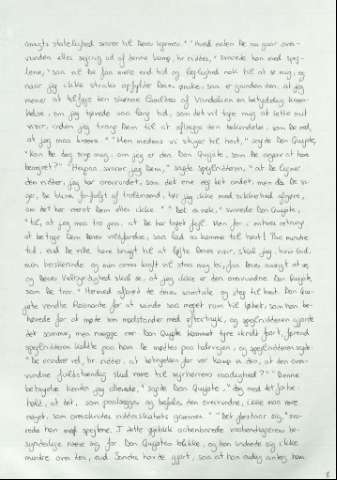 ansigts statelighed svarer til Deres hjertes." "Hvad enten De nu gaar over-
vunden eller sejrig ud af denne kamp, hr. ridder," svarede ham med spej-
lene, "saa vil De faa mere end tid og lejlighed nok til at se mig, og
naar jeg ikke straks opfylder Deres ønske, saa er grunden den, at jeg
mener at tilføje den skønne Casildea af Vandalien en betydelig kræn-
kelse, om jeg tøvede saa lang tid, som det vil tage mig at lette mit
visir, inden jeg tvang Dem til at aflægge den bekendelse, som De ved,
at jeg maa kræve." "Men medens vi stiger til hest," sagde Don Quijote,
"kan De dog sige mig, om jeg er den Don Quijote, som De siger at have
besejret?" "Herpaa svarer jeg Dem," sagde spejlridderen, "at De ligner
den ridder, jeg har overvundet, som det ene æg det andet, men da De si-
ger, De bliver forfulgt af troldmænd, tør jeg ikke med sikkerhed afgøre,
om det her nævnte Dem eller ikke." "Det er nok," svarede Don Quijote,
"til, at jeg maa tro paa, at De har taget fejl. Men for i mellem
at betage Dem Deres vildfarelse, saa lad os komme til hest! Thi mindre
tid, end De ville have brugt til at løfte Deres visir, skal jeg, hvis Gud,
min herskerinde og min arms kraft vil staa mig bi, faa Deres ansigt at se,
og Deres Velbyrdighed skal se, at jeg ikke er den overvundne Don Quijote,
som De tror." Hermed afbrød de deres samtale og steg til hest. Don Qui-
jote vendte Rosinante for at vinde saa meget rum til løbet, som han be-
høvede for at møde sin modstander med eftertryk, og spejlridderen gjorde
det samme, men næppe var Don Quijote kommet tyve skridt fort, førend
spejlridderen kaldte paa ham. De mødtes paa halvvejen, og spejlridderen sagde:
"De erindrer vel, hr. ridder, at betingelsen for vor kamp er den, at den over-
vundne fuldstændig skal være til sejrherrens raadighed?" "Denne
betingelse kender jeg allerede," sagde Don Quijote, "dog med det forbe-
hold, at det, som paalægges og befales den overvundne, ikke maa være
noget, som overskrider ridderskabets grænser." "Det forstaar sig," sva-
rede ham med spejlene. I dette øjeblik aabenbarede vaabendragerens be-
synderlige næse sig for Don Quijotes blikke, og han undrede sig ikke
mindre over den, end Sancho havde gjort, saa at han endog antog ham